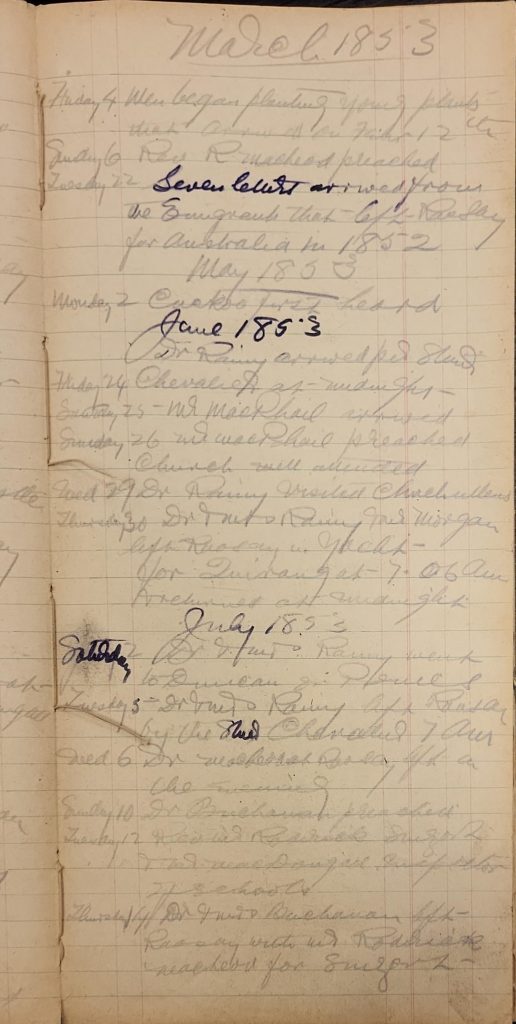 March 1853
Friday 4 Men began planting young plants
that arrived on 12th
Sunday 6 Rev R Macleod preached
Tuesday 22 Seven letters arrived from
the Emigrants that left Raasay
for Australia in 1852
May 1853
Monday 2 Cuckoo first heard
June 1853
Dr Rainy arrived per
Friday 24 Chevalier at midnight
Saturday 25 Mr MacPhail arrived
Sunday 26 Mr MacPhail preached
Church well attended
Wed 29 Dr Rainy visited
Thursday 30 Dr & Mrs Rainy Morgan
left Raasay in Yacht
for Quirang at 7.06 Am
& returned at midnight
July 1853
Saturday 2 Dr & Mrs Rainy went
to Duncan
Tuesday 5 Dr & Mrs Rainy left Raasay
by the Chevalier 7 Am
Wed 6 Dr left in
the evening
Sunday 10 Dr Buchanan preached
Tuesday 12 Rev Mr Roderick
& Mr MacDougall Inspector
of schools
Thursday 14 Dr & Mrs Buchanan left
Raasay with Mr Roderick
Macleod for